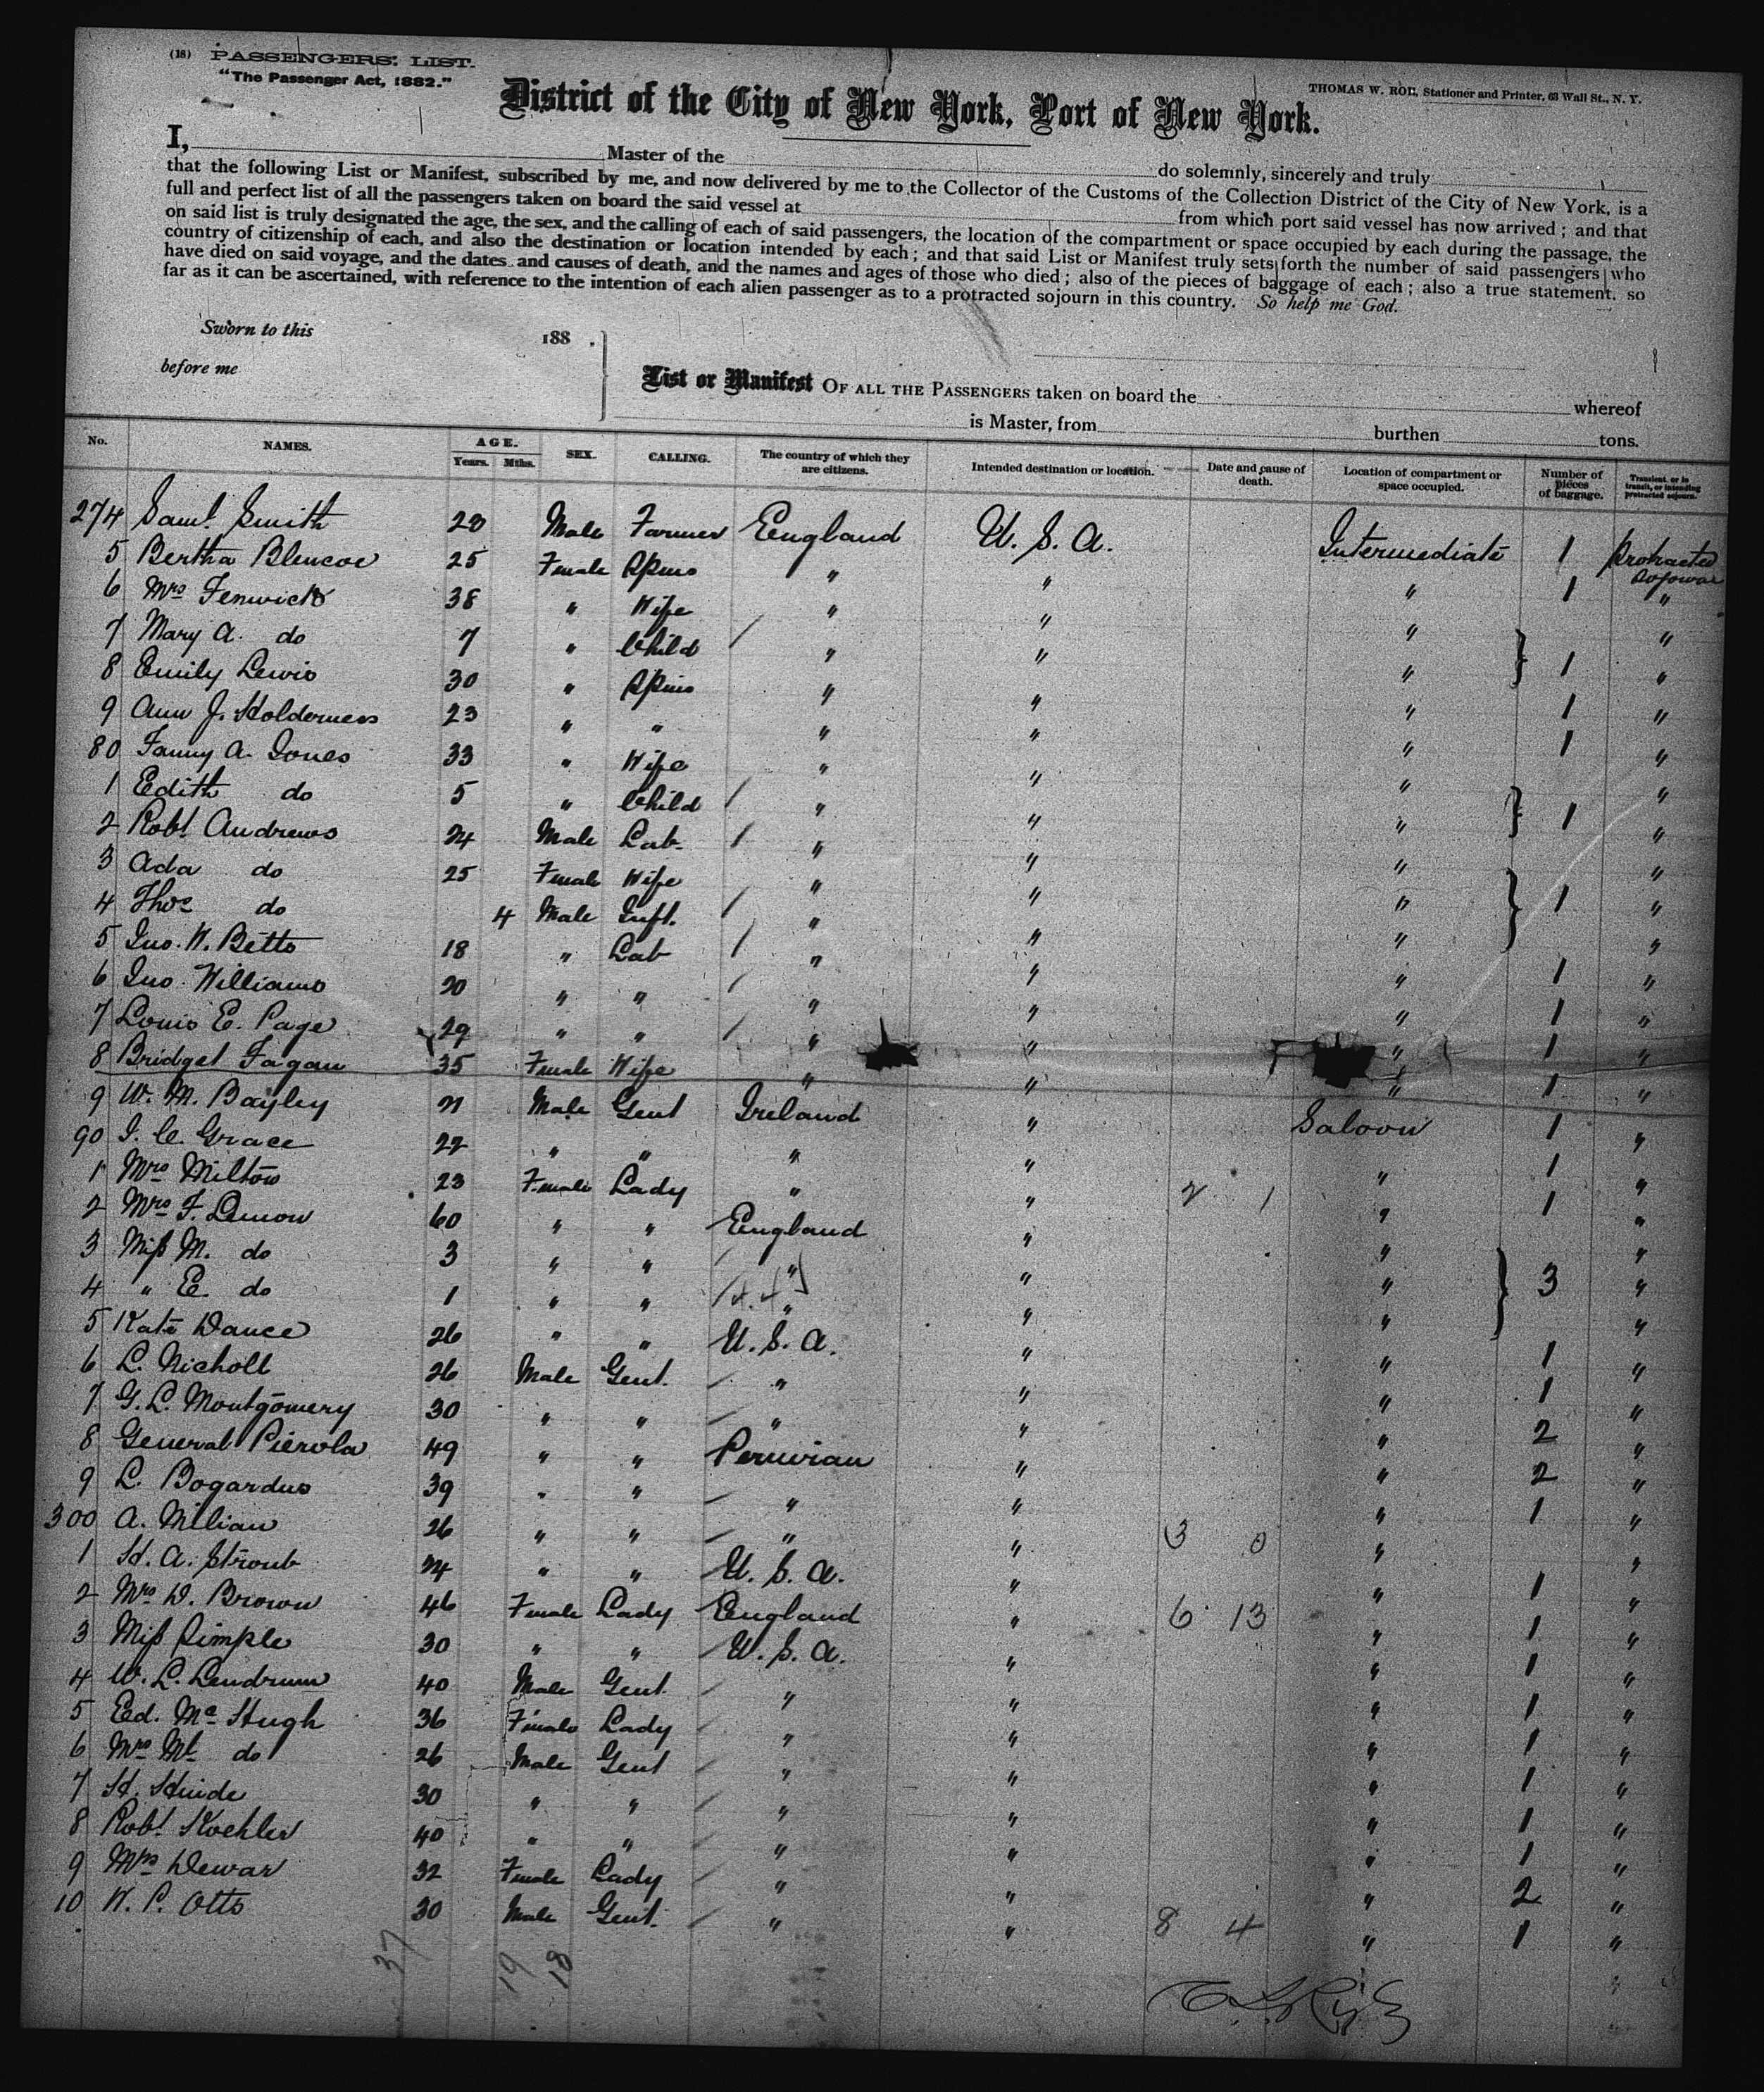 (18) PASSENGERS' LIST.
"The Passenger Act, 1882."
THOMAS W. ROE, Stationer and Printer, 63 Wall St., N. Y.
District of the City of New York, Port of New York.
I, Master of the do solemnly, sincerely and truly
that the following List or Manifest, subscribed by me, and now delivered by me to the Collector of the Customs of the Collection District of the City of New York, is a
full and perfect list of all the passengers taken on board the said vessel at from which port said vessel has now arrived; and that
on said list is truly designated the age, the sex, and the calling of each of said passengers, the location of the compartment or space occupied by each during the passage, the
country of citizenship of each, and also the destination or location intended by each; and that said List or Manifest truly sets forth the number of said passengers who
have died on said voyage, and the dates and causes of death, and the names and ages of those who died; also of the pieces of baggage of each; also a true statement, so
far as it can be ascertained, with reference to the intention of each alien passenger as to a protracted sojourn in this country. So help me God.
Sworn to this 188 .
before me
List or Manifest OF ALL THE PASSENGERS taken on board the whereof
is Master, from burthen tons.
No. NAMES. AGE. Years. Mths. SEX. CALLING. The country of which they are citizens. Intended destination or location. Date and cause of death. Location of compartment or space occupied. Number of pieces of baggage. Transient, or in transit, or intending protracted sojourn.
274 Saml. Smith 23 Male Farmer England U. S. A. Intermediate 1 Protracted Sojour
5 Bertha Blencoe 25 Female Spins " " " 1 "
6 Mrs Fenwick 38 " Wife " " " "
7 Mary A. do 7 " Child " " " 1 "
8 Emily Lewis 30 " Spins " " " 1 "
9 Ann J. Holderness 23 " " " " " 1 "
80 Fanny A. Jones 33 " Wife " " " "
1 Edith do 5 " Child " " " 1 "
2 Robt Andrews 24 Male Lab. " " " "
3 Ada do 25 Female Wife " " " 1 "
4 Thos do 4 Male Inft. " " " "
5 Jno. W. Betts 18 " Lab " " " 1 "
6 Jno. Williams 20 " " " " " 1 "
7 Louis E. Page 29 " " " " " 1 "
8 Bridget Fagan 35 Female Wife " " " 1 "
9 W. M. Bayley 21 Male Gent Ireland " Saloon 1 "
90 J. C. Grace 22 " " " " " 1 "
1 Mrs Milton 23 Female Lady " " 2 1 " 1 "
2 Mrs F. Lemon 60 " " England " " "
3 Miss M. do 3 " " " " " 3 "
4 " E. do 1 " " " " " "
5 Kate Dance 26 " " U. S. A. " " 1 "
6 L. Nicholl 26 Male Gent. " " " 1 "
7 G. L. Montgomery 30 " " " " " 2 "
8 General Pierola 49 " " Peruvian " " 2 "
9 L. Bogardus 39 " " " " " 1 "
300 A. Milian 26 " " " " 3 0 " "
1 H. A. Stroub 24 " " U. S. A. " " 1 "
2 Mrs D. Brown 46 Female Lady England " 6 13 " 1 "
3 Miss Simple 30 " " U. S. A. " " 1 "
4 W. L. Lendrum 40 Male Gent. " " " 1 "
5 Ed. Mc Hugh 36 Female Lady " " " 1 "
6 Mrs Mc do 26 Male Gent " " " 1 "
7 H. Hinde 30 " " " " " 1 "
8 Robt Koehler 40 " " " " " 1 "
9 Mrs Dewar 32 Female Lady " " " 2 "
10 W. P. Otts 30 Male Gent. " " 8 4 " 1 "
37 19 18